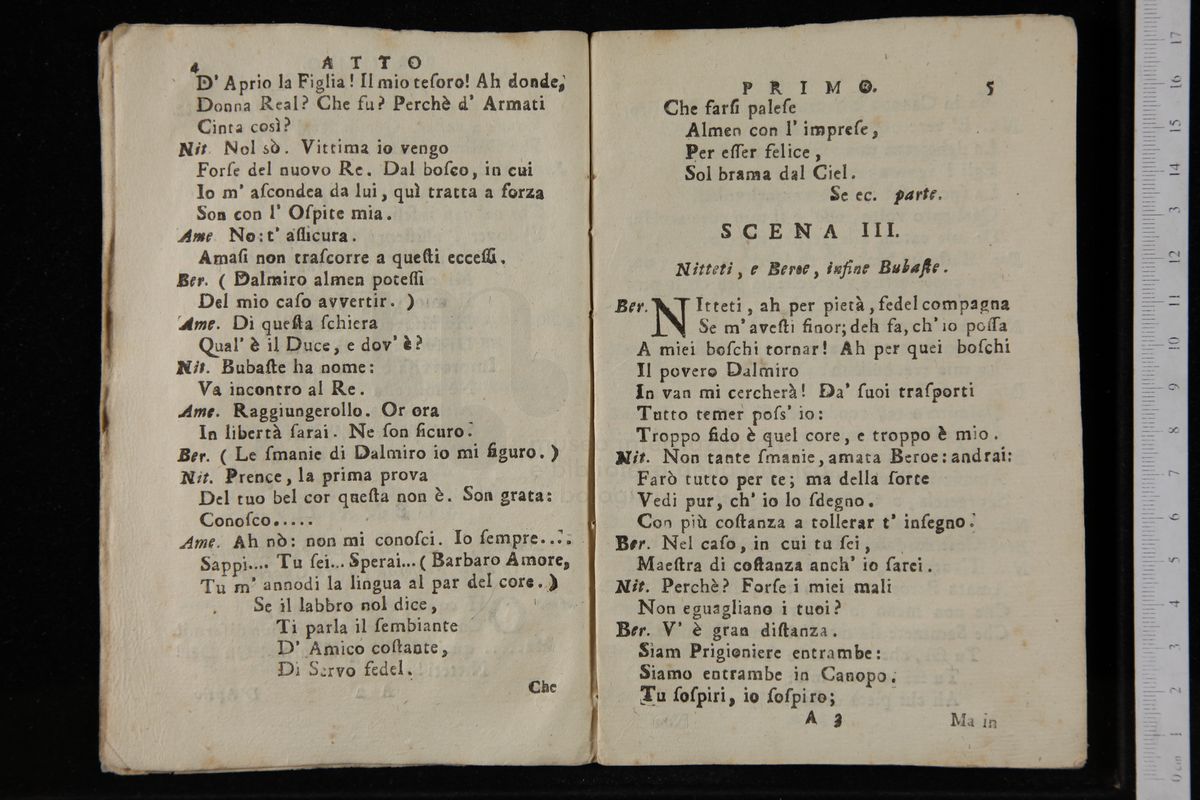 4 ATTO
D' Aprio la Figlia! Il mio teſoro! Ah donde,
Donna Real? Che fu? Perchè d' Armati
Cinta così?
Nit. Nol sò. Vittima io vengo
Forſe del nuovo Re. Dal boſco, in cui
Io m' aſcondea da lui, quì tratta a forza
Son con l' Oſpite mia.
Ame No: t' aſſicura.
Amaſi non traſcorre a queſti ecceſſi.
Ber. ( Dalmiro almen poteſſi
Del mio caſo avvertir. )
Ame. Di queſta ſchiera
Qual' è il Duce, e dov' è?
Nit. Bubaſte ha nome:
Va incontro al Re.
Ame. Raggiungerollo. Or ora
In libertà ſarai. Ne ſon ſicuro.
Ber. ( Le ſmanie di Dalmiro io mi figuro. )
Nit. Prence, la prima prova
Del tuo bel cor queſta non è. Son grata:
Conoſco.....
Ame. Ah nò: non mi conoſci. Io ſempre....
Sappi.... Tu ſei... Sperai... ( Barbaro Amore,
Tu m' annodi la lingua al par del core. )
Se il labbro nol dice,
Ti parla il ſembiante
D' Amico coſtante,
Di Servo fedel.
Che
PRIMO. 5
Che farſi paleſe
Almen con l' impreſe,
Per eſſer felice,
Sol brama dal Ciel.
Se ec. parte.
SCENA III.
Nitteti, e Beroe, infine Bubaſte.
Ber. NItteti, ah per pietà, fedel compagna
Se m' aveſti finor; deh fa, ch' io poſſa
A miei boſchi tornar! Ah per quei boſchi
Il povero Dalmiro
In van mi cercherà! Da' ſuoi traſporti
Tutto temer poſs' io:
Troppo fido è quel core, e troppo è mio.
Nit. Non tante ſmanie, amata Beroe: andrai:
Farò tutto per te; ma della ſorte
Vedi pur, ch' io lo ſdegno.
Con più coſtanza a tollerar t' inſegno.
Ber. Nel caſo, in cui tu ſei,
Maeſtra di coſtanza anch' io ſarei.
Nit. Perchè? Forſe i miei mali
Non eguagliano i tuoi?
Ber. V' è gran diſtanza.
Siam Prigioniere entrambe:
Siamo entrambe in Canopo.
Tu ſoſpiri, io ſoſpiro;
A 3 Ma in